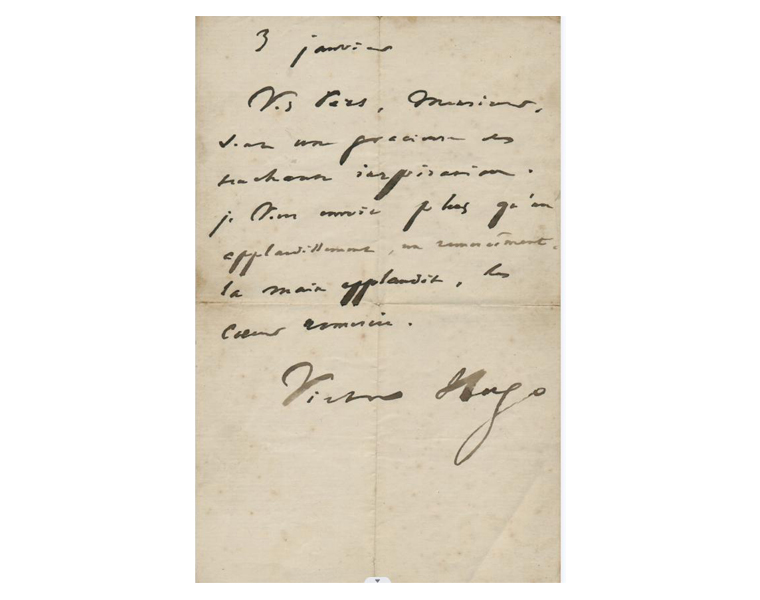 3 janvier
Vos vers, Monsieur,
sont une gracieuse et
touchante inspiration.
je vous envoie plus qu'un
applaudissement, un remerciement.
la main applaudit, le
cœur remercie.
Victor Hugo